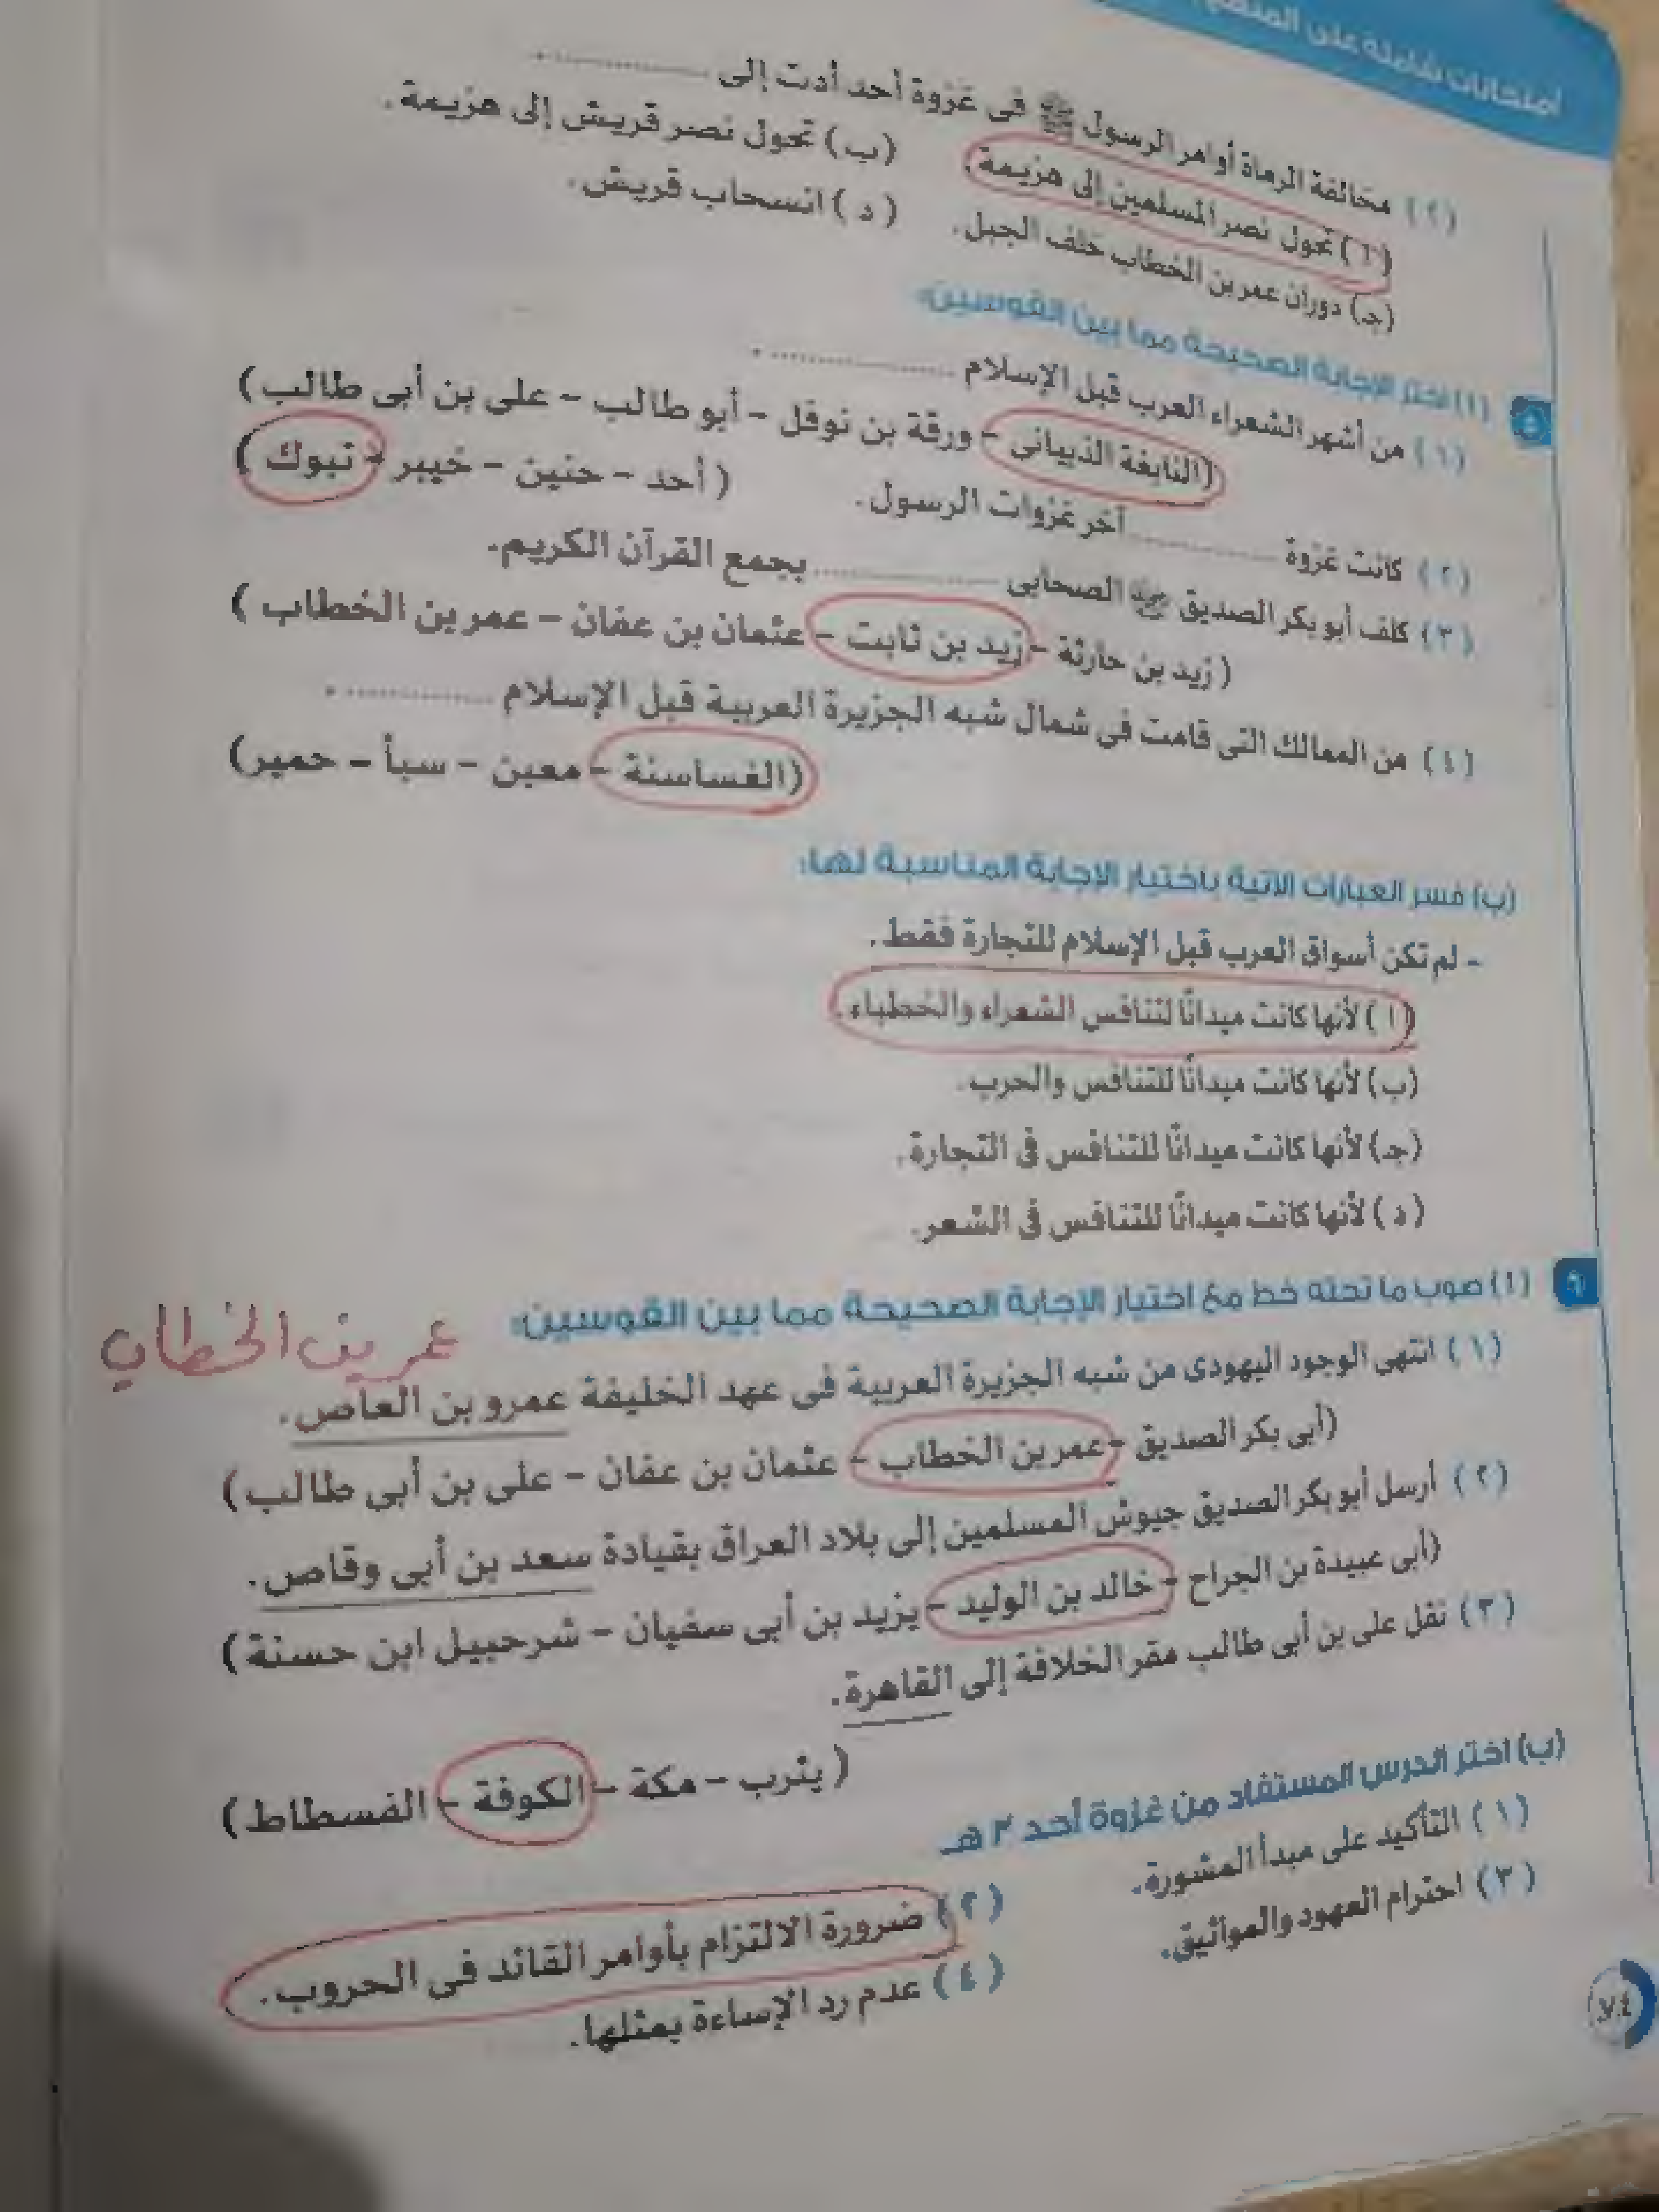 امتحانات شاملة على المنهج
(٢) مخالفة الرماة أوامر الرسول ﷺ فى غزوة أحد أدت إلى ............ .
(أ) تحول نصر المسلمين إلى هزيمة. (ب) تحول نصر قريش إلى هزيمة.
(جـ) دوران عمر بن الخطاب خلف الجبل. (د) انسحاب قريش.
٥ (أ) اختر الإجابة الصحيحة مما بين القوسين:
(١) من أشهر الشعراء العرب قبل الإسلام ............ .
(النابغة الذبيانى - ورقة بن نوفل - أبو طالب - على بن أبى طالب)
(٢) كانت غزوة ............ آخر غزوات الرسول. (أحد - حنين - خيبر - تبوك)
(٣) كلف أبو بكر الصديق الصحابى ............ بجمع القرآن الكريم.
(زيد بن حارثة - زيد بن ثابت - عثمان بن عفان - عمر بن الخطاب)
(٤) من الممالك التى قامت فى شمال شبه الجزيرة العربية قبل الإسلام ............ .
(الغساسنة - معين - سبأ - حمير)
(ب) فسر العبارات الآتية باختيار الإجابة المناسبة لها:
- لم تكن أسواق العرب قبل الإسلام للتجارة فقط.
(أ) لأنها كانت ميدانًا لتنافس الشعراء والخطباء.
(ب) لأنها كانت ميدانًا للتنافس والحرب.
(جـ) لأنها كانت ميدانًا للتنافس فى التجارة.
(د) لأنها كانت ميدانًا للتنافس فى الشعر.
٦ (أ) صوب ما تحته خط مع اختيار الإجابة الصحيحة مما بين القوسين:
عمر بن الخطاب
(١) انتهى الوجود اليهودى من شبه الجزيرة العربية فى عهد الخليفة عمرو بن العاص.
(أبى بكر الصديق - عمر بن الخطاب - عثمان بن عفان - على بن أبي طالب)
(٢) أرسل أبو بكر الصديق جيوش المسلمين إلى بلاد العراق بقيادة سعد بن أبى وقاص.
(أبى عبيدة بن الجراح - خالد بن الوليد - يزيد بن أبى سفيان - شرحبيل ابن حسنة)
(٣) نقل على بن أبى طالب مقر الخلافة إلى القاهرة.
(يثرب - مكة - الكوفة - الفسطاط)
(ب) اختر الدرس المستفاد من غزوة أحد ٣ هـ
(١) التأكيد على مبدأ المشورة. (٢) ضرورة الالتزام بأوامر القائد فى الحروب.
(٣) احترام العهود والمواثيق. (٤) عدم رد الإساءة بمثلها.